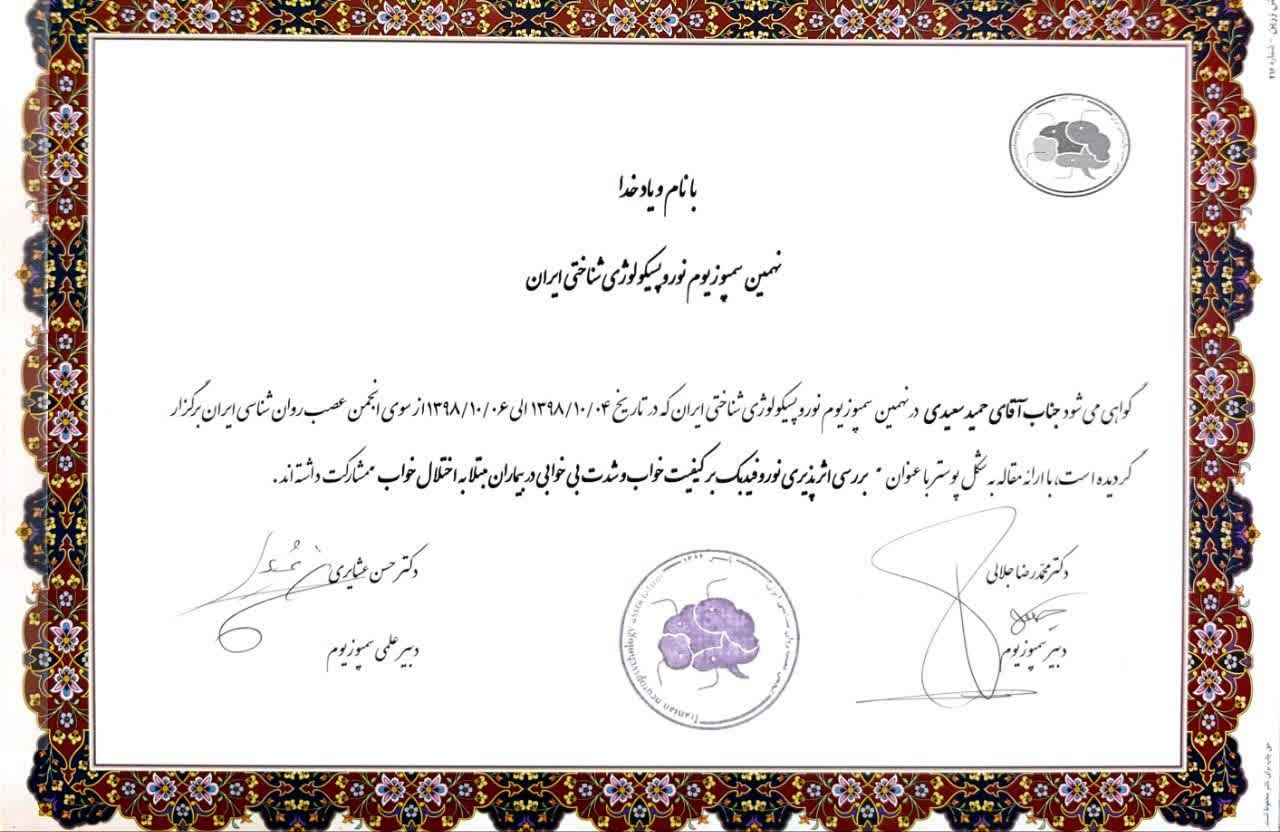 با نام و یاد خدا
نهمین سمپوزیوم نوروپسیکولوژی شناختی ایران
گواهی می شود جناب آقای حمید سعیدی در نهمین سمپوزیوم نوروپسیکولوژی شناختی ایران که در تاریخ ۱۳۹۸/۱۰/۰۴ الی ۱۳۹۸/۱۰/۰۶ از سوی انجمن عصب روان شناسی ایران برگزار
گردیده است، با ارائه مقاله به شکل پوستر با عنوان " بررسی اثرپذیری نوروفیدبک بر کیفیت خواب و شدت بی خوابی در بیماران مبتلا به اختلال خواب " مشارکت داشته اند .
دکتر محمدرضا جلالی
دبیر سمپوزیوم
دکتر حسن عشایری
دبیر علمی سمپوزیوم
Iranian neuropsychology association
حق چاپ برای ناشر محفوظ است